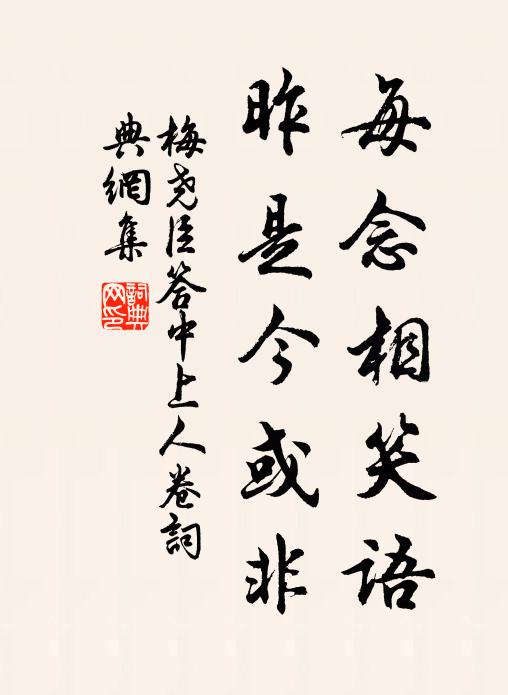 每念相笑语
昨是今或非
梅尧臣答中上人卷詞
典網集
詞典
网印